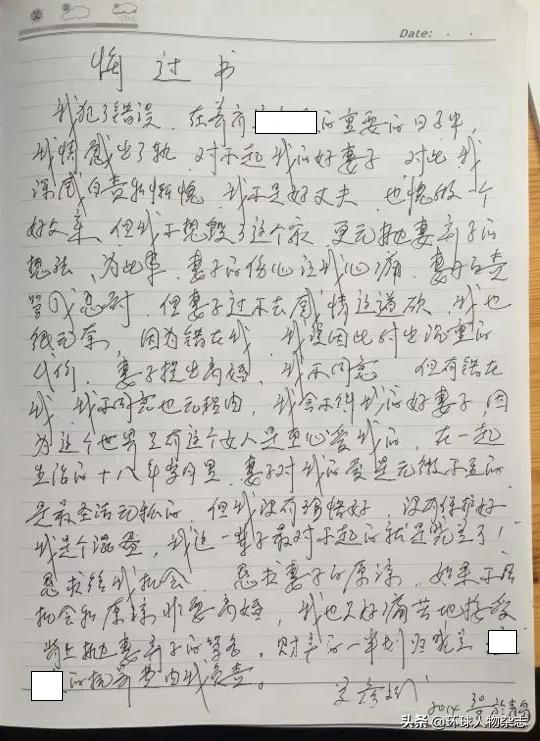 Date: · ·
悔过书
我犯了错误,在养育 的重要的日子中,
我情感出了轨,对不起我的好妻子,对此,我
深感自责和惭愧,我不是好丈夫,也愧做一个
好父亲,但我不想毁了这个家,更无抛妻弃子的
想法,为此事,妻子的伤心让我心痛,妻
但妻子过不去感情这道砍,我也
很无奈,因为错在我,我要因此付出沉重的
代价,妻子提出离婚,我不同意,但有错在
我,我不同意也无理由,我舍不得我的好妻子,因
为这个世界只有这个女人是真心爱我的,在一起
生活的十八年岁月里,妻子对我的爱是无微不至的
是最圣洁无私的,但我没有珍惜好,没有保护好
我是个混蛋,我这一辈子最对不起的就是 了!
恳求给我机会,恳求妻子的原谅,如果不给
机会和原谅非要离婚,我也只好痛苦地接受
背上抛妻弃子的骂名,财产的一半划归
的抚养费由我负责。
2014
头条@环球人物杂志